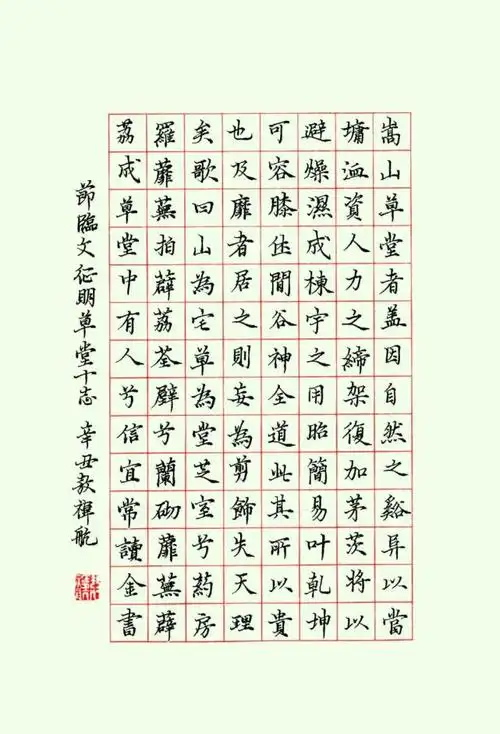 嵩山草堂者盖因自然之谿阜以當
墉洫資人力之締架復加茅茨將以
避燥濕成棟宇之用昭簡易叶乾坤
可容膝休間谷神全道此其所以貴
也及靡者居之則妄為剪飾失天理
矣歌曰山為宅草為堂芝室兮葯房
羅蘼蕪拍薜荔荃壁兮蘭砌蘼蕪薜
荔成草堂中有人兮信宜常讀金書
節臨文征明草堂十志 辛丑敖禪航